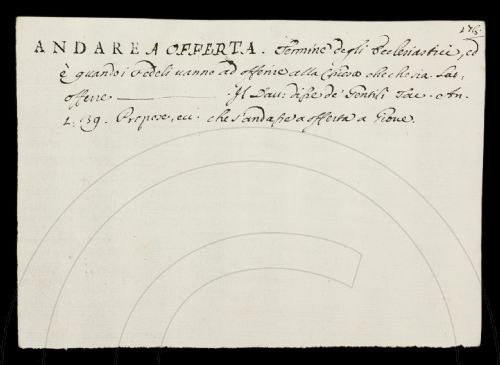 176.
ANDARE A OFFERTA. Termine degli Ecclesiastici, ed
è quando i Fedeli vanno ad offerire alla Chiesa che che sia. Lat.
offerre ———. Il Dav. disse de' Gentili Tac. An.
1. 39. Propose, ecc. che s'andasse a offerta a Giove.